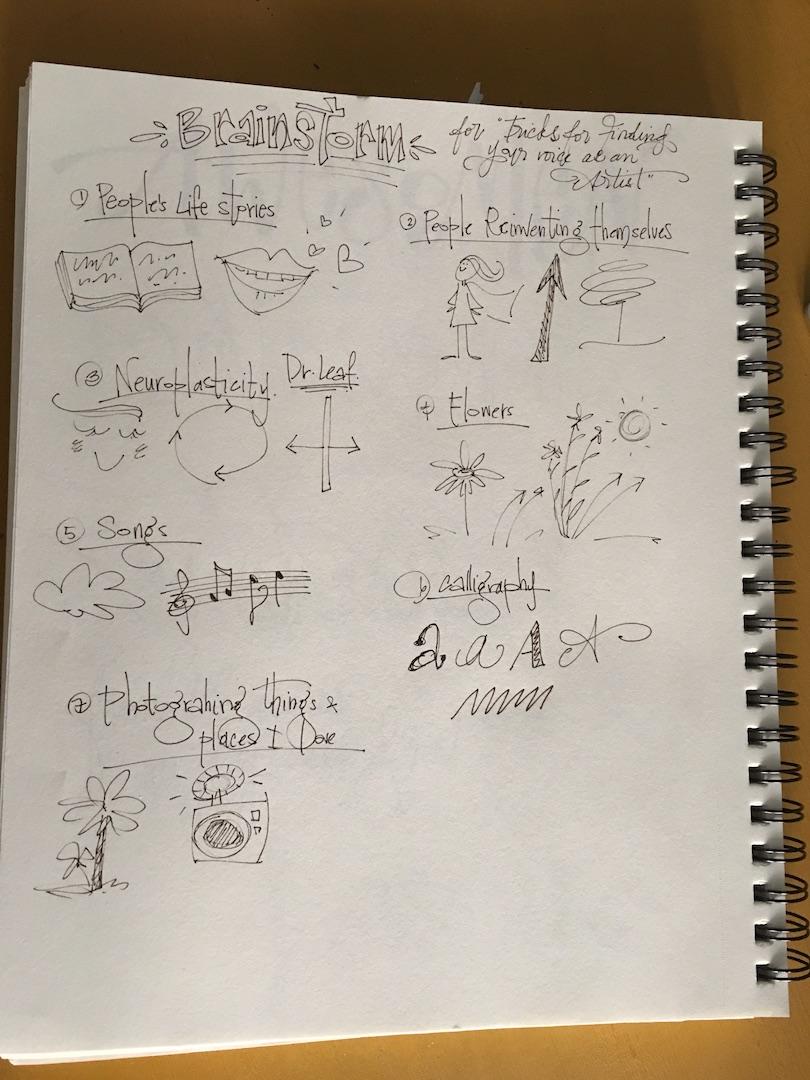 Brainstorm
for "Tricks for Finding
your voice as an
Artist"
① People's Life stories
B
② People Reinventing themselves
③ Neuroplasticity. Dr. Leaf
④ Flowers
⑤ Songs
⑥ Calligraphy
a a A A
⑦ Photograhing Things &
places I Love